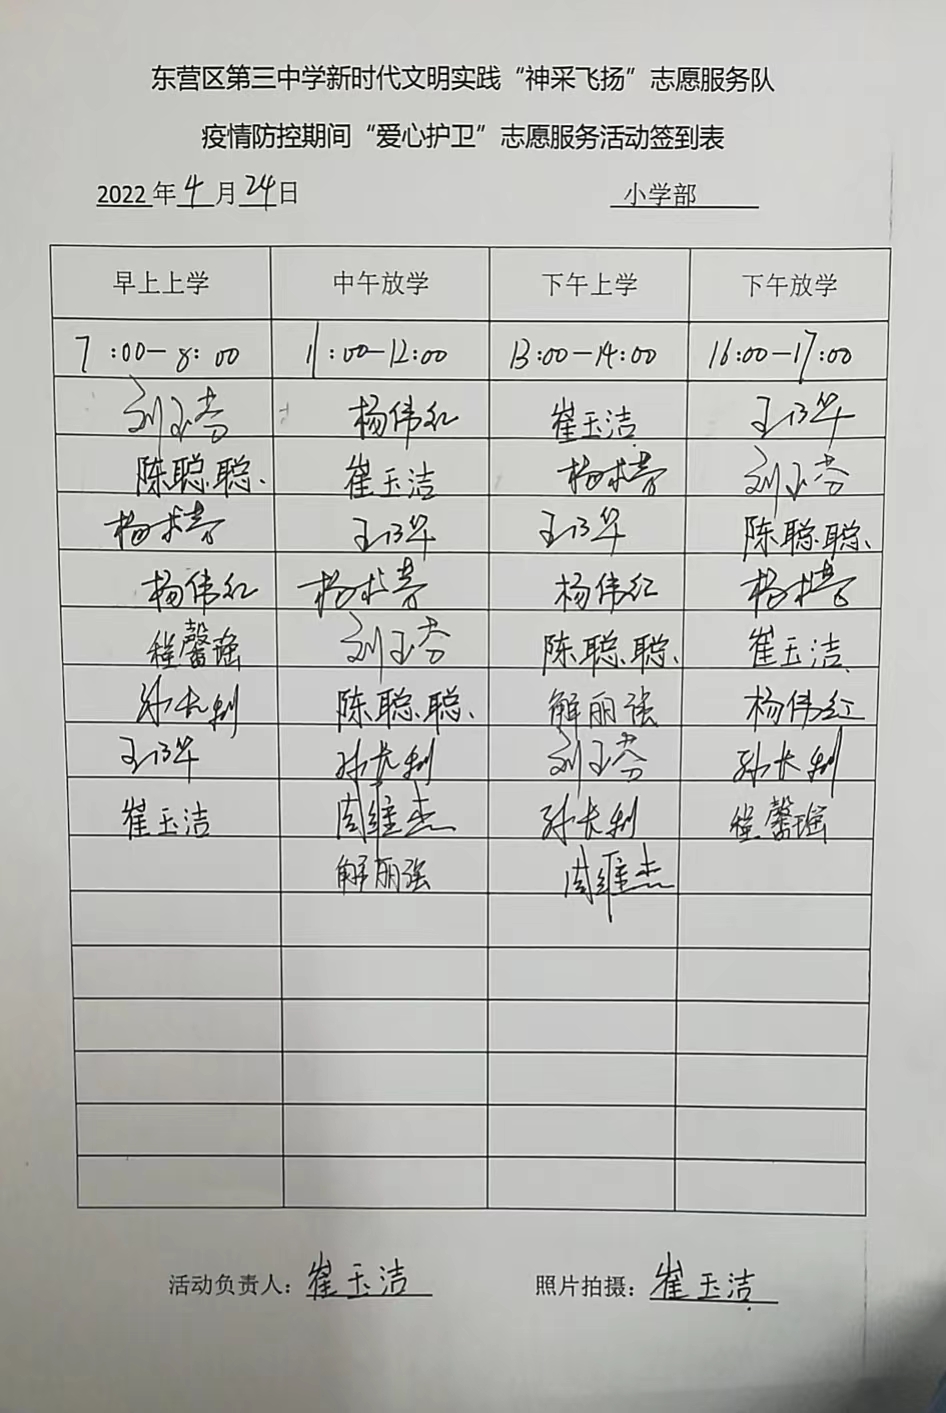 东营区第三中学新时代文明实践“神采飞扬”志愿服务队
疫情防控期间“爱心护卫”志愿服务活动签到表
2022年4月24日 小学部
早上上学 中午放学 下午上学 下午放学
7:00-8:00 11:00-12:00 13:00-14:00 16:00-17:00
刘玉芬 杨伟红 崔玉洁 王乃华
陈聪聪 崔玉洁 杨 刘玉芬
杨 王乃华 王乃华 陈聪聪
杨伟红 杨 杨伟红 杨
程馨瑶 刘玉芬 陈聪聪 崔玉洁
孙长利 陈聪聪 解丽强 杨伟红
王乃华 孙长利 刘玉芬 孙长利
崔玉洁 周维杰 孙长利 程馨瑶
解丽强 周维杰
活动负责人:崔玉洁 照片拍摄:崔玉洁